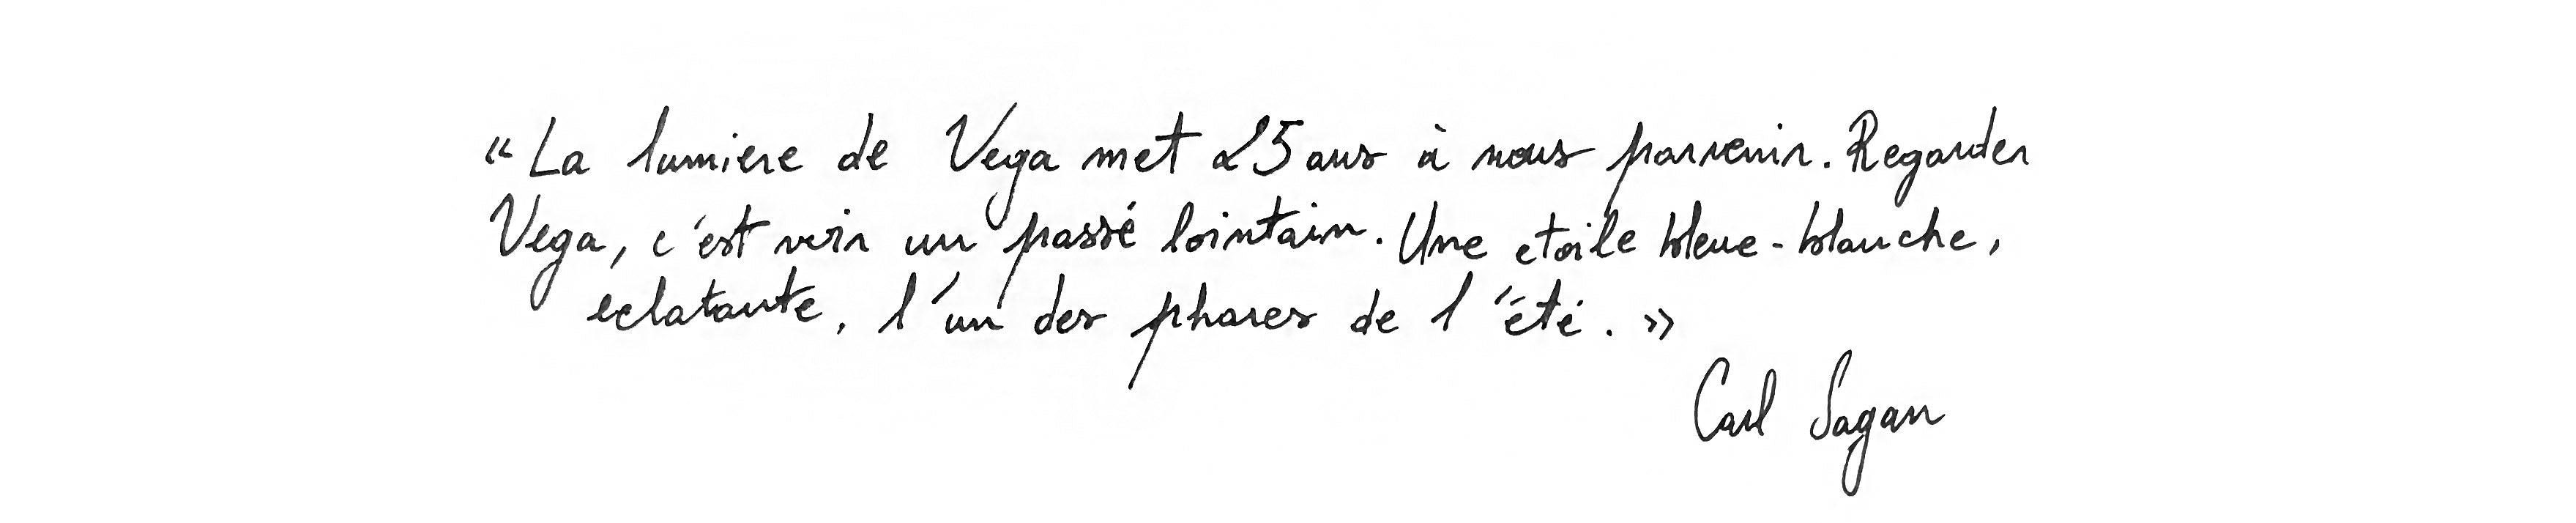 « La lumiere de Vega met 25 ans à nous parvenir. Regarder
Vega, c'est voir un passé lointain. Une etoile bleue-blanche,
eclatante, l'un des phares de l'été. »
Carl Sagan